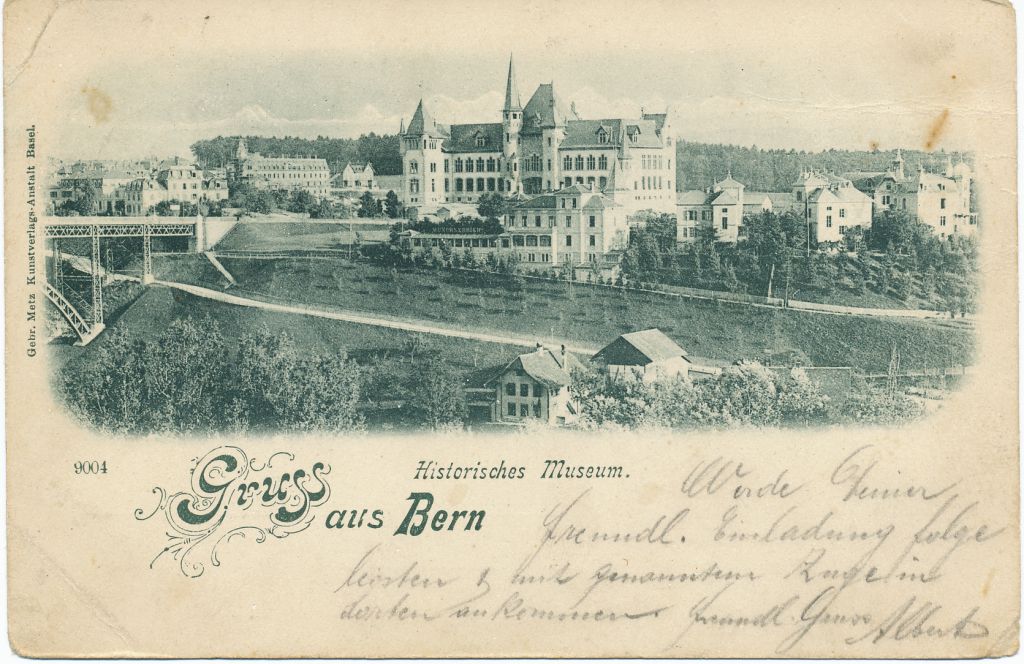 Gebr. Metz Kunstverlags-Anstalt Basel.
9004
Historisches Museum.
Gruss
aus Bern
Werde Deiner
freundl. Einladung folge
leisten & mit genanntem Zuge in
dorten ankommen. freundl. Gruss
Albert